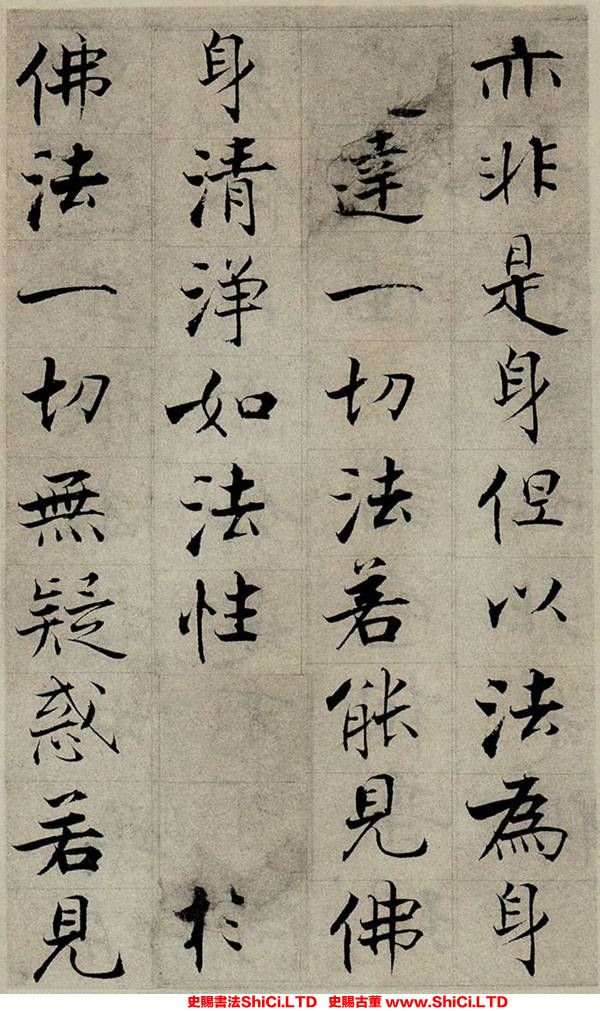 亦非是身但以法為身
達一切法若能見佛
身清淨如法性
於
佛法一切無疑惑若見
史賜書法ShiCi.LTD 史賜古董 www.ShiCi.LTD